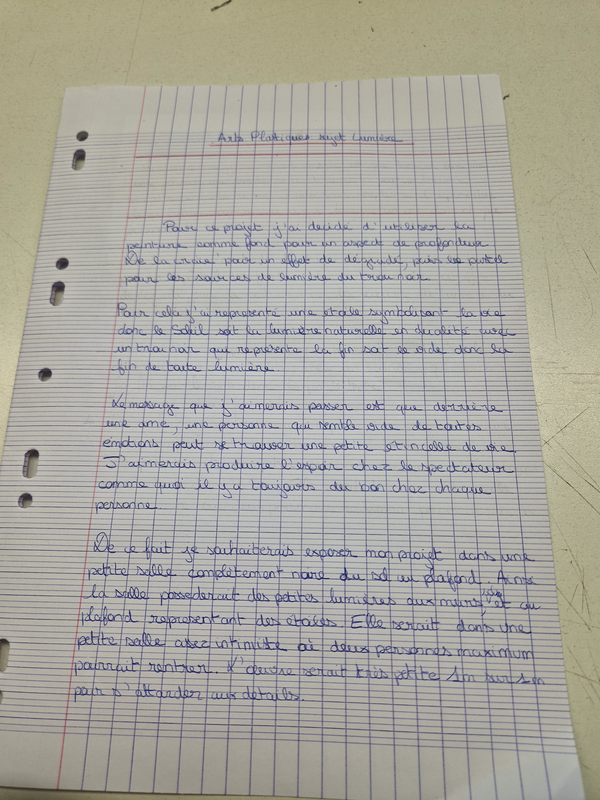 Arts Plastiques sujet Lumière
Pour ce projet j'ai décidé d'utiliser la
peinture comme fond pour un aspect de profondeur
De la craie pour un effet de dégradé, puis le pastel
pour les sources de lumière du trou noir
Pour cela j'ai représenté une étoile symbolisant la vie
donc le Soleil soit la lumière naturelle en dualité avec
un trou noir qui représente la fin soit le vide donc la
fin de toute lumière
Le message que j'aimerais passer est que derrière
une âme, une personne qui semble vide de toutes
émotions peut se trouver une petite étincelle de vie
J'aimerais produire l'espoir chez le spectateur
comme quoi il y a toujours du bon chez chaque
personne.
De ce fait je souhaiterais exposer mon projet dans une
petite salle complètement noire du sol au plafond. Ainsi
la salle possèderait des petites lumières aux murs et au
plafond représentant des étoiles. Elle serait dans une
petite salle assez intimiste où deux personnes maximum
pourrait rentrer. L'œuvre serait très petite 1m sur 1m
pour s'attarder aux détails.